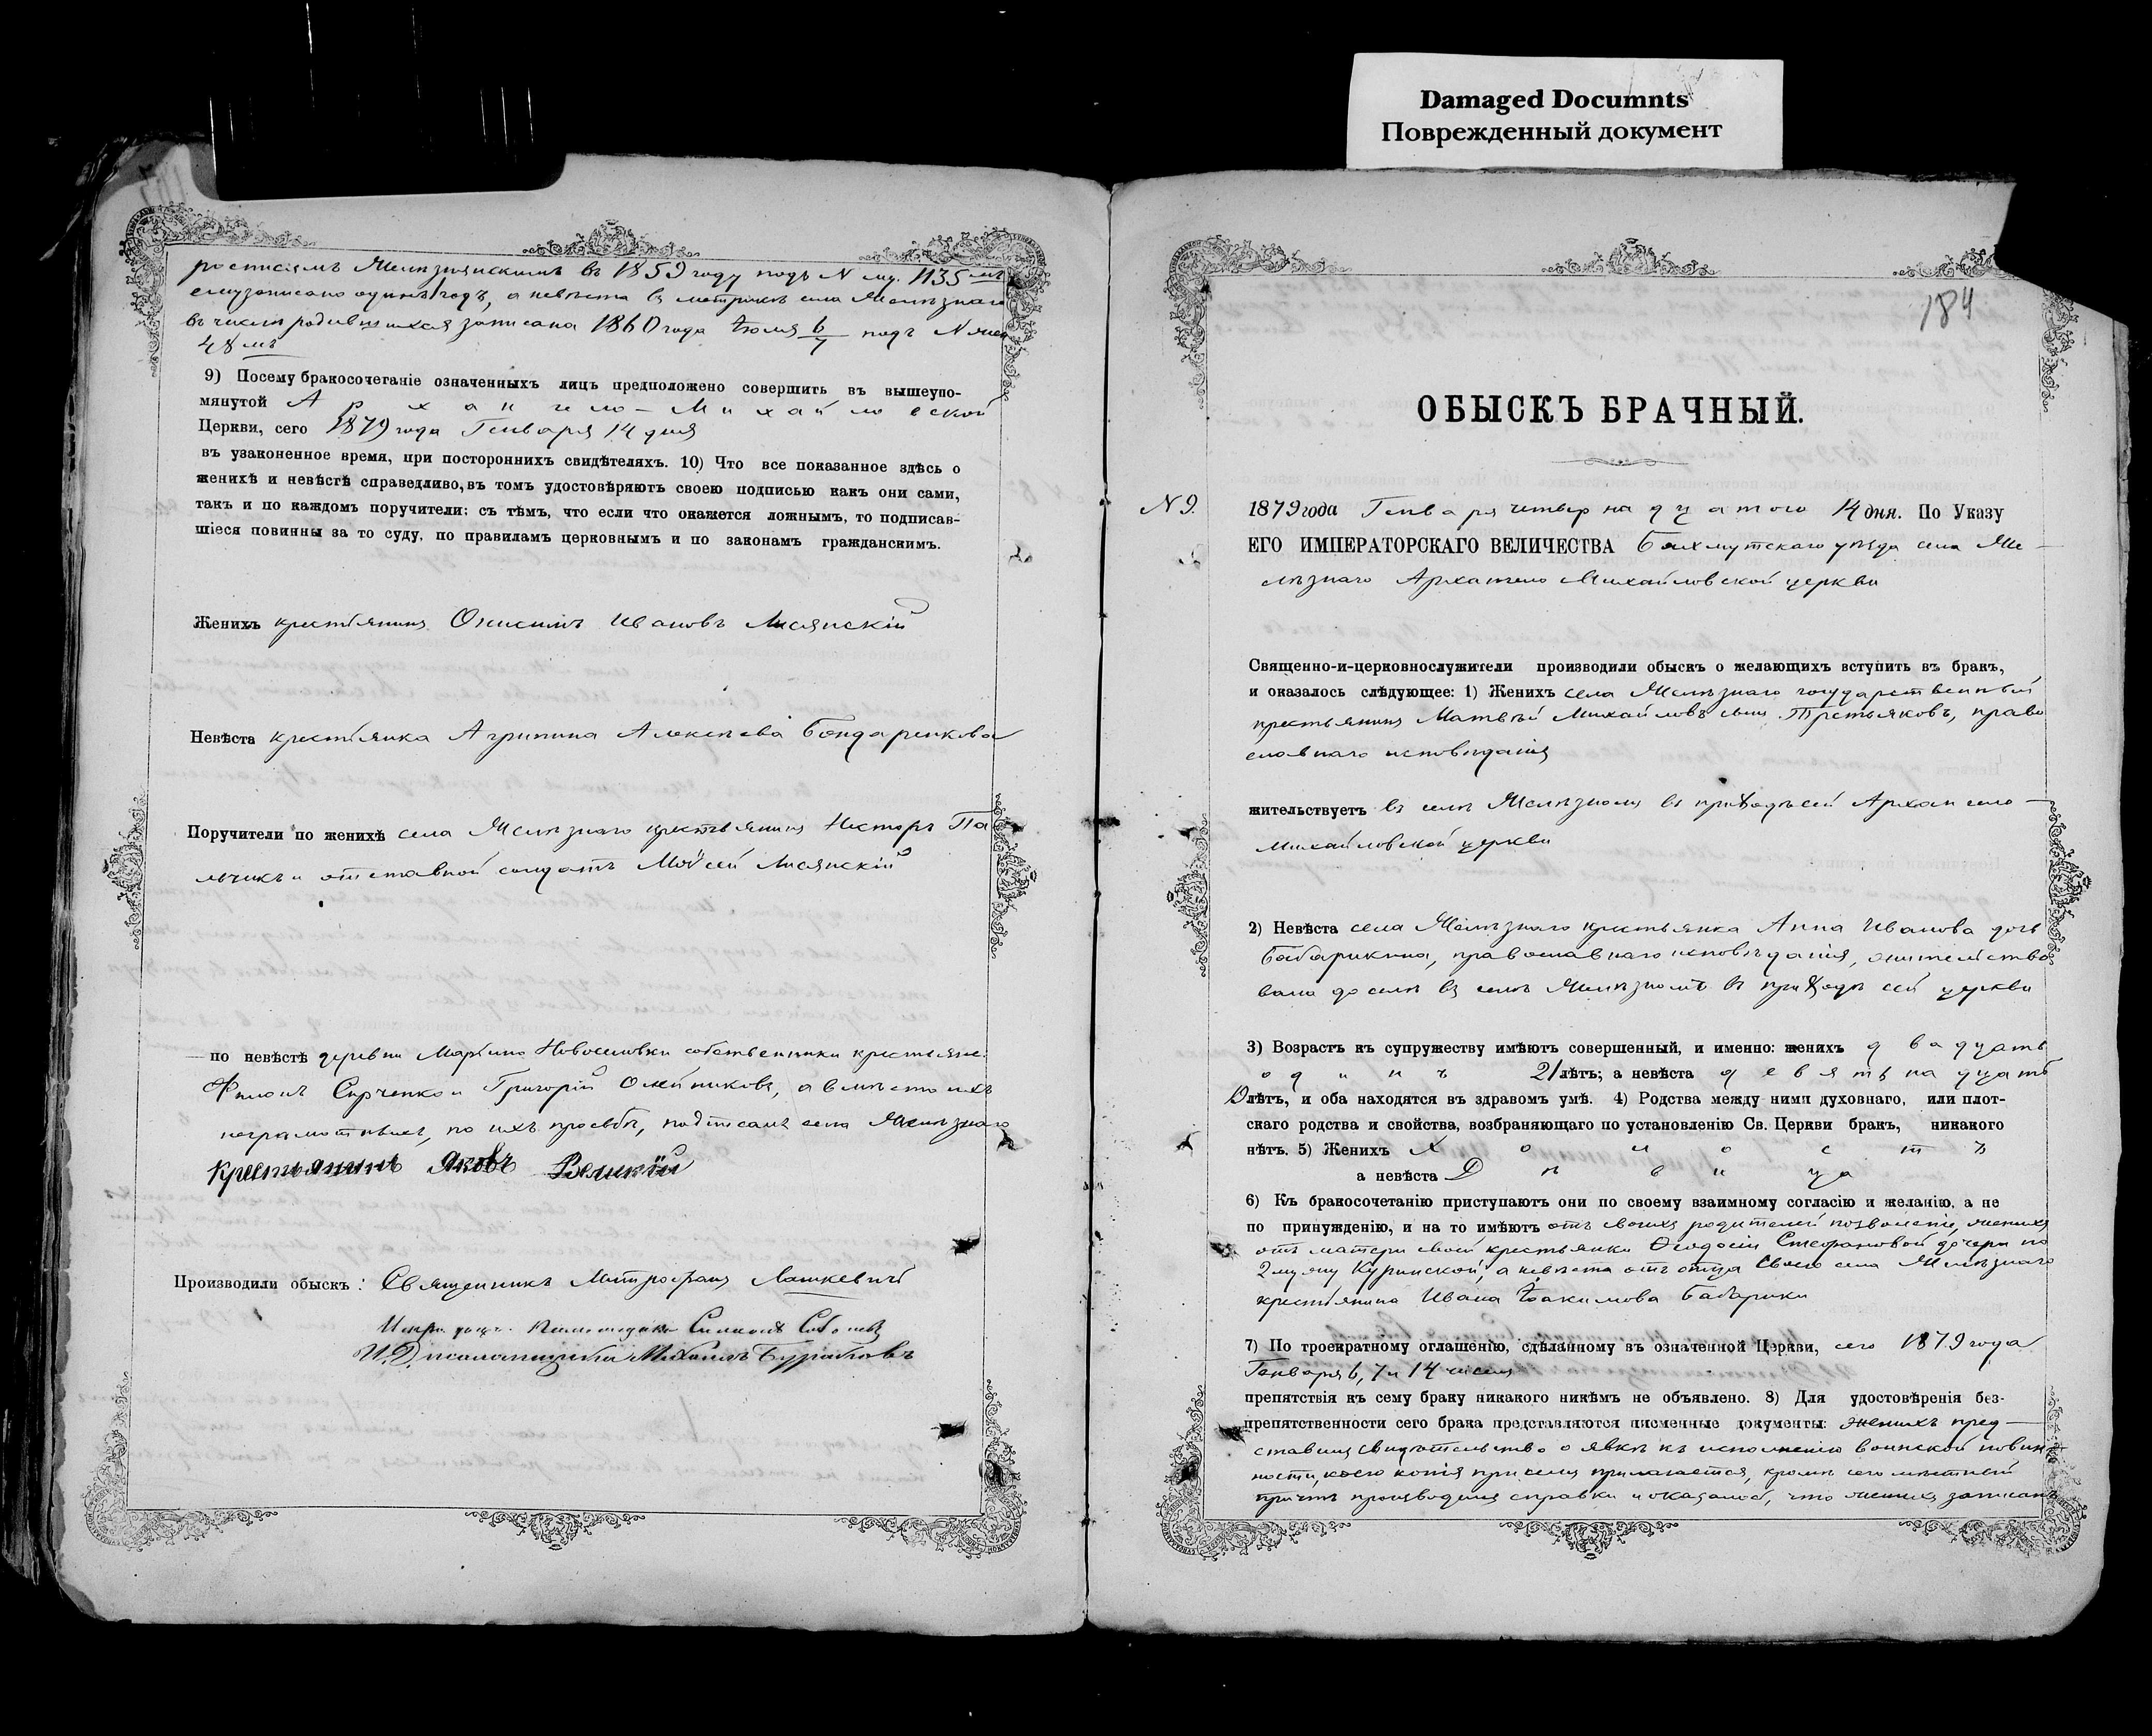 Damaged Documnts
Поврежденный документ
росписямъ Желѣзнянскимъ въ 1859 году подъ N му. 1135 мъ
ему записано одинъ годъ, а невѣста въ метрикѣ села Желѣзнаго
въ числѣ родившихся записана 1860 года Іюля 6/7 подъ N жен
48 мъ
9) Посему бракосочетаніе означенныхъ лицъ предположено совершить въ вышеупо-
мянутой Архангело-Михайловской
Церкви, сего 1879 года Генваря 14 дня
въ узаконенное время, при постороннихъ свидѣтеляхъ. 10) Что все показанное здѣсь о
женихѣ и невѣстѣ справедливо, въ томъ удостовѣряютъ своею подписью какъ они сами,
такъ и по каждомъ поручители: съ тѣмъ, что если что окажется ложнымъ, то подписав-
шіеся повинны за то суду, по правиламъ церковнымъ и по законамъ гражданскимъ.
Женихъ крестьянинъ Онисимъ Ивановъ Лисянскій
Невѣста крестьянка Агрипина Алексѣева Бондаренкова
Поручители по женихѣ села Желѣзнаго крестьянинъ Несторъ Па
льчикъ и отставной солдатъ Моѵсей Лисянскій
по невѣстѣ деревни Марьино Новоселовки собственники крестьяне:
Филонъ и Григорій Олейниковъ, а вмѣсто ихъ
неграмотныхъ, по ихъ просьбѣ, подписалъ села Желѣзнаго
крестьянинъ Яковъ Великій
Производили обыскъ: Священникъ Митрофанъ Лашкевичъ
Симеонъ
И. Д. псаломщика Михаилъ
184
ОБЫСКЪ БРАЧНЫЙ.
N 9. 1879 года Генваря четвернадцатого 14 дня. По Указу
ЕГО ИМПЕРАТОРСКАГО ВЕЛИЧЕСТВА Бахмутскаго уѣзда села Же-
лѣзнаго Архангело Михайловской церкви
Священно-и-церковнослужители производили обыскъ о желающихъ вступить въ бракъ,
и оказалось слѣдующее: 1) Женихъ села Желѣзнаго государственный
крестьянинъ Матвѣй Михайловъ сынъ Третьяковъ, право
славнаго исповѣданія
жительствуетъ въ селѣ Желѣзномъ въ приходѣ сей Архангело-
Михайловской церкви
2) Невѣста села Желѣзнаго крестьянка Анна Иванова дочь
Бабарикина, православнаго исповѣданія, жительство
вала до селѣ въ селѣ Желѣзномъ въ приходѣ сей церкви
3) Возрастъ къ супружеству имѣютъ совершенный, и именно: женихъ двадцать
одинъ 21 лѣтъ; а невѣста девятьнадцать
лѣтъ, и оба находятся въ здравомъ умѣ. 4) Родства между ними духовнаго, или плот-
скаго родства и свойства, возбраняющаго по установленію Св. Церкви бракъ, никакого
нѣтъ. 5) Женихъ Холостъ
а невѣста Дѣвица
6) Къ бракосочетанію приступаютъ они по своему взаимному согласію и желанію, а не
по принужденію, и на то имѣютъ отъ своихъ родителей позволеніе, женихъ
отъ матери своей крестьянки Ѳеодосіи Стефановой дочери по
2 му мужу Куринской, а невѣста отъ отца своего села Желѣзнаго
крестьянина Ивана Іоакимова Бабарики
7) По троекратному оглашенію, сдѣланному въ означенной Церкви, сего 1879 года
Генваря 6, 7 и 14 чиселъ
препятствія къ сему браку никакого никѣмъ не объявлено. 8) Для удостовѣренія без-
препятственности сего брака представляются писменные документы: женихъ пред-
ставилъ свидѣтельство о явкѣ къ исполненію воинской повин
ности, коего копія при семъ прилагается, кромѣ сего мѣстный
причтъ производилъ справки и оказалось, что женихъ записанъ